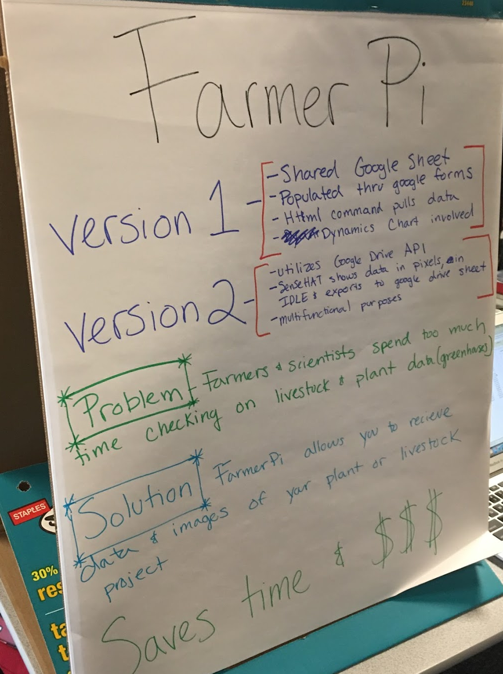 Farmer Pi
version 1 -
- Shared Google Sheet
- Populated thru google forms
- Html command pulls data
- Dynamics Chart involved
version 2 -
- utilizes Google Drive API
- SenseHAT shows data in pixels, in
IDLE & exports to google drive sheet
- multifunctional purposes
Problem Farmers & scientists spend too much
time checking on livestock & plant data (greenhouses)
Solution FarmerPi allows you to recieve
data & images of your plant or livestock
project
Saves time & $$$
STAPLES
30%